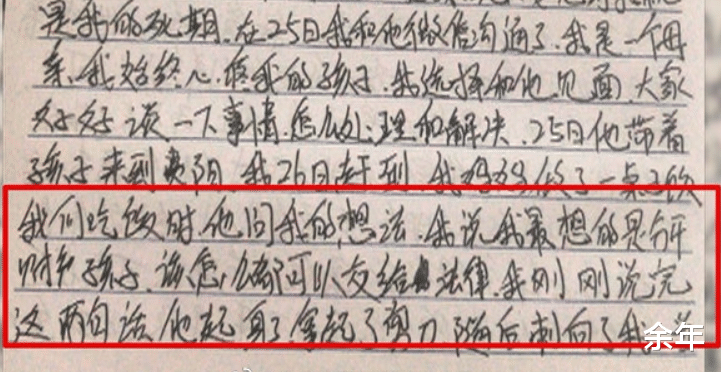 是我的死期。在25日我和他微信沟通了。我是一个母
亲，我始终心疼我的孩子，我选择和他见面，大家
好好谈一下事情怎么处理和解决。25日他带着
孩子来到贵阳，我26日赶到。我妈妈做了一桌子饭
我们吃饭时，他问我的想法，我说我最想的是分开
财产孩子，该怎么都可以交给法律，我刚刚说完
这两句话他起身了拿起了剪刀随后刺向了我
余年